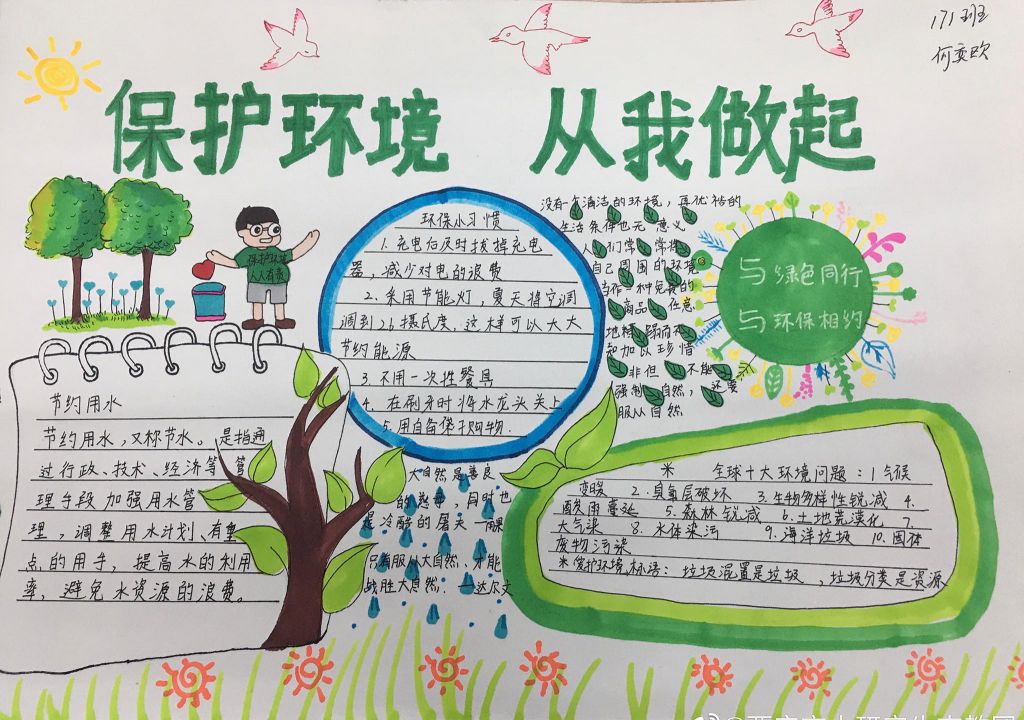 171班
保护环境 从我做起
保护环境
人人有责
环保小习惯
1.充电后及时拔掉充电
器,减少对电的浪费
2.采用节能灯,夏天将空调
调到26摄氏度.这样可以大大
节约能源
3.不用一次性餐具
4.在刷牙时将水龙头关上
5.用自备袋子购物.
没有一个清洁的环境,再优裕的
生活条件也无意义
人们常常将
自己周围的环境
当作一种免费的
商品,任意
地糟蹋而不
知加以珍惜
非但不能
强制自然,还要
服从自然
与绿色同行
与环保相约
节约用水
节约用水,又称节水。是指通
过行政、技术、经济等管
理手段加强用水管
理,调整用水计划、有重
点的用手,提高水的利用
率,避免水资源的浪费。
大自然是善良
的慈母,同时也
是冷酷的屠夫 一雨果
只有服从大自然、才能
战胜大自然. 达尔文
※ 全球十大环境问题:1气候
变暖 2.臭氧层破坏 3.生物多样性锐减 4.
酸雨蔓延 5.森林锐减 6.土地荒漠化 7.
大气染 8.水体染污 9.海洋垃圾 10.固体
废物污染
※爱护环境标语:垃圾混置是垃圾,垃圾分类是资源